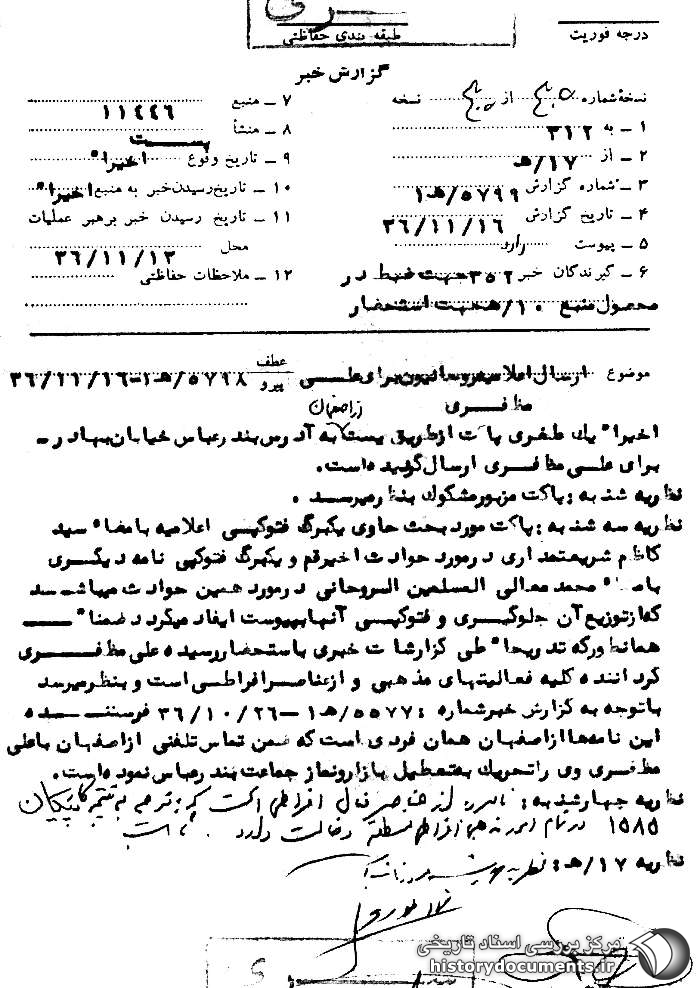 سری
درجه فوریت
طبقه بندی حفاظتی
گزارش خبر
نسخهٔ شماره از نسخه
۱ - به ۳۱۲
۲ - از ۱۷/ه‍
۳ - شماره گزارش ۵۷۹۹/ه‍۱
۴ - تاریخ گزارش ۳۶/۱۱/۱۶
۵ - پیوست دارد
۶ - گیرندگان خبر ۳۵۲جهت ضبط در
محصول منبع ۱۰/ه‍جهت استحضار
۷ - منبع ۱۱۴۴۶
۸ - منشأ پست
۹ - تاریخ وقوع اخیرا"
۱۰ - تاریخ رسیدن خبر به منبع اخیرا"
۱۱ - تاریخ رسیدن خبر برهبر عملیات
محل ۳۶/۱۱/۱۳
۱۲ - ملاحظات حفاظتی
موضوع ارسال اعلامیه روحانیون برای علی عطف پیرو ۵۷۹۸/ه‍۱-۳۶/۱۱/۱۶
مظفری
از اصفهان
اخیرا" یک طغری پاکت ازطریق پست به آدرس بندرعباس خیابان بهادر-
برای علی مظفری ارسال گردیده است.
نظریه شنبه : پاکت مزبور مشکوک بنظر میرسد .
نظریه سه شنبه : پاکت مورد بحث حاوی یکبرگ فتوکپی اعلامیه بامضا" سید
کاظم شریعتمداری درمورد حوادث اخیرقم و یکبرگ فتوکپی نامه دیگری
محمد معالی المسلمین الروحانی درمورد همین حوادث میباشد
که از توزیع آن جلوگیری و فتوکپی آنها بپیوست ایفاد میگردد ضمنا"
همانطورکه تدریجا" طی گزارشات خبری باستحضار رسیده علی مظفری
گرداننده کلیه فعالیتهای مذهبی و ازعناصر افراطی است و بنظر میرسد
باتوجه به گزارش خبر شماره : ۵۵۷۷/ه‍۱-۳۶/۱۰/۲۶ فرستنده
این نامه‌ها از اصفهان همان فردی است که ضمن تماس تلفنی ازاصفهان باعلی
مظفری وی را تحریک به تعطیل بازار و نماز جماعت بندرعباس نموده است.
نظریه چهارشنبه : نامبرده از عناصر فعال افراطی است که
۱۵۸۵ در تمام امور مذهبی افراطی منطقه دخالت دارد
نظریه ۱۷/ه‍ : نظریه
مرکز بررسی اسناد تاریخی
historydocuments.ir